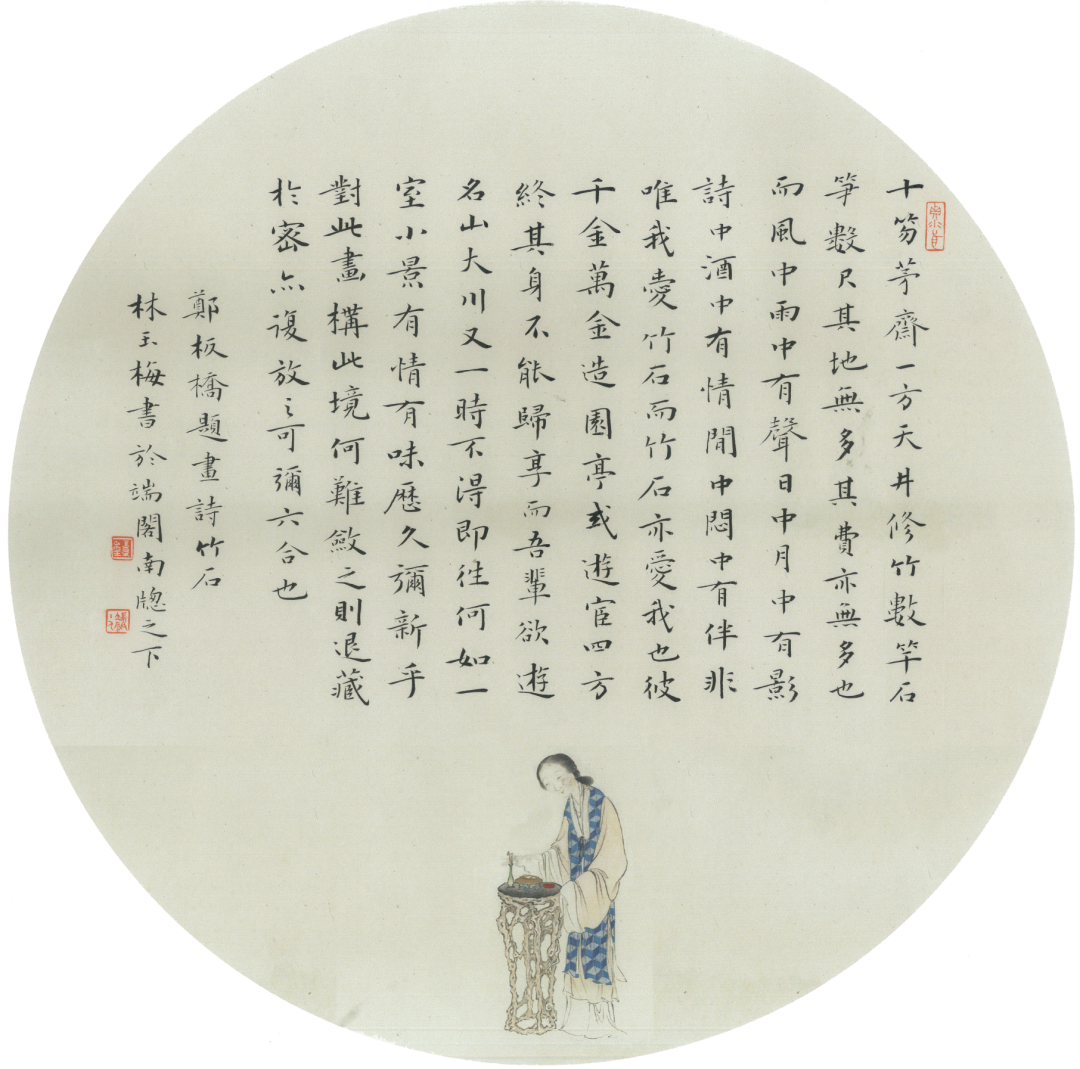 十笏茅齋一方天井修竹數竿石
笋數尺其地無多其費亦無多也
而風中雨中有聲日中月中有影
詩中酒中有情閒中悶中有伴非
唯我愛竹石而竹石亦愛我也彼
千金萬金造園亭或遊宦四方
終其身不能歸享而吾輩欲遊
名山大川又一時不得即往何如一
室小景有情有味歷久彌新乎
對此畫構此境何難斂之則退藏
於密亦復放之可彌六合也
鄭板橋題畫詩竹石
林玉梅書於端閣南牕之下